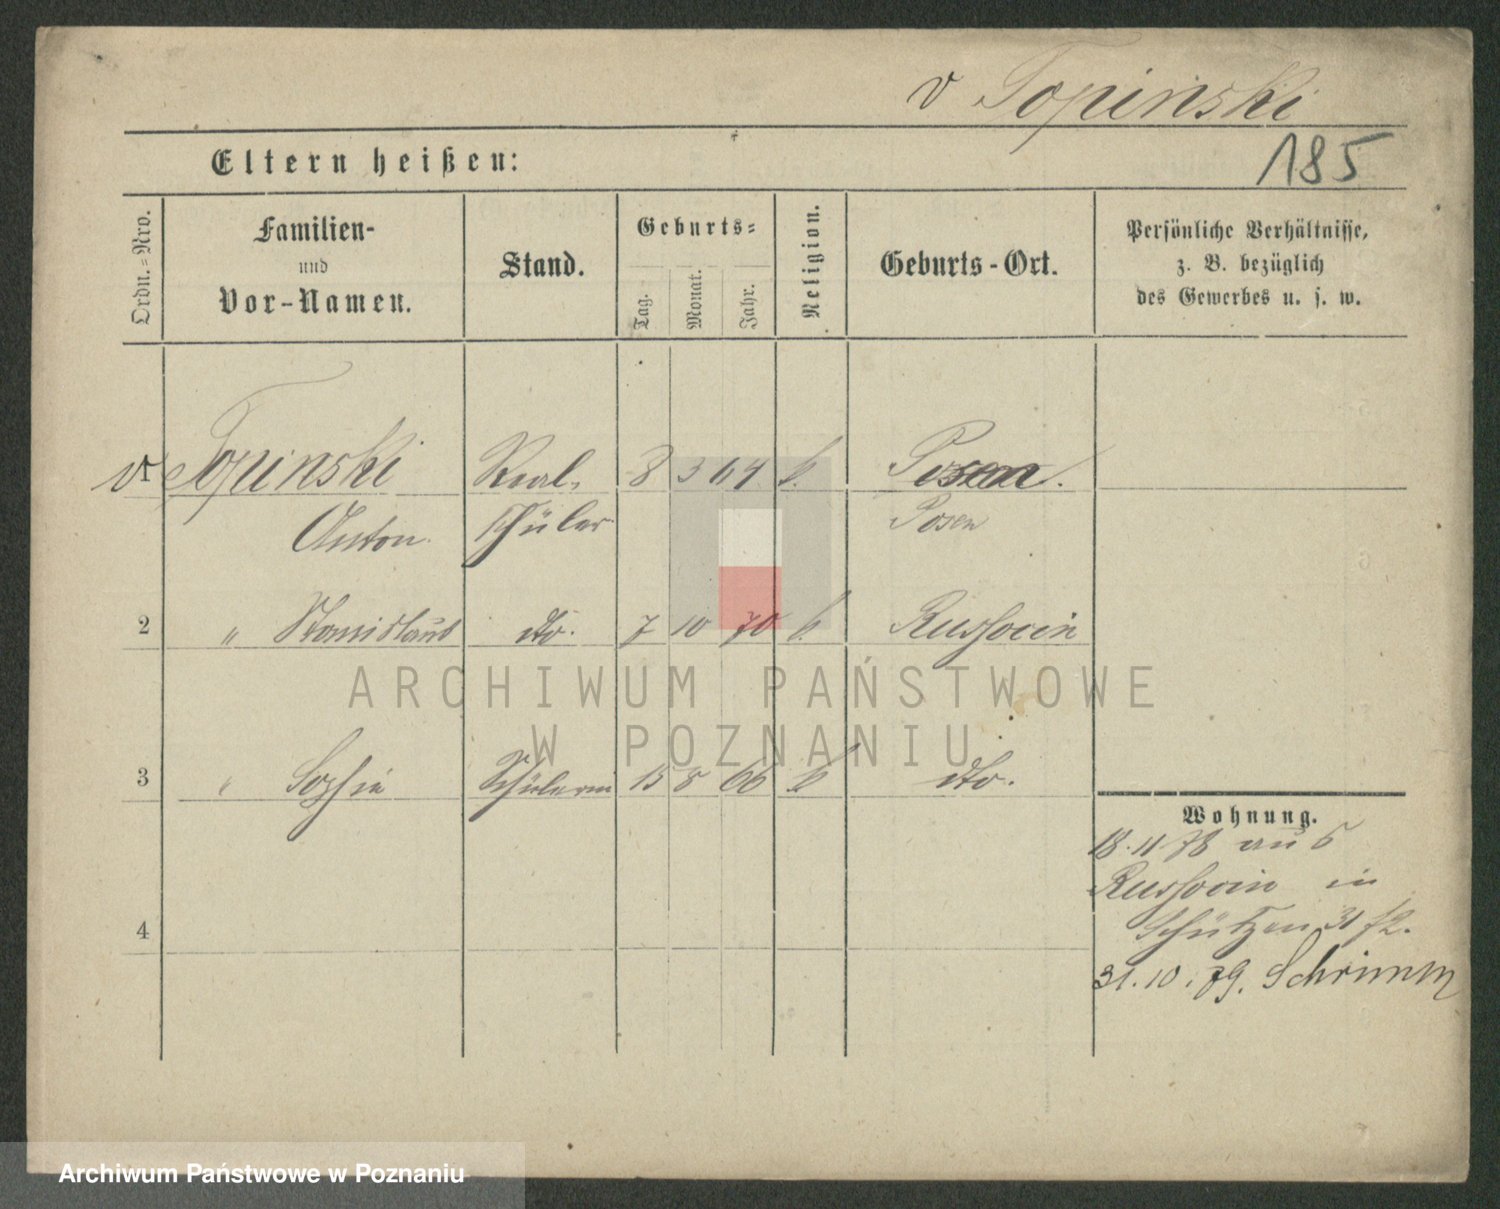 v Topinski
185
Eltern heißen:
Ordn.=Nro.
Familien-
und
Vor-Namen.
Stand.
Geburts=
Tag.
Monat.
Jahr.
Religion.
Geburts-Ort.
Persönliche Verhältnisse,
z. B. bezüglich
des Gewerbes u. s. w.
v 1 Topinski Real- 8 3 64 k. Posen.
Anton schüler Posen
2 " Stanislaus dto. 7 10 70 k. Russocin
3 " Sophie Schülerin 15 8 66 k dto.
4
Wohnung.
18.11 78 aus
Russocin in
Schützen 31
31.10.79. Schrimm
ARCHIWUM PAŃSTWOWE
W POZNANIU
Archiwum Państwowe w Poznaniu